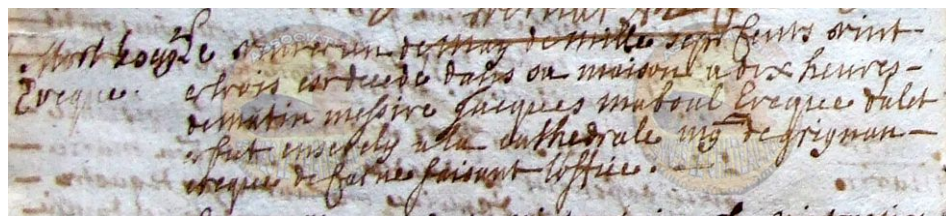 Mort Le vint et un de may de mille sept cents vint
Eveque. et trois est decedé dans sa maison a dix heures
de matin messire Jacques maboul Eveque dalet
et fut ensevely a la cathedrale mgr de grignan
eveque de faisant loffice.